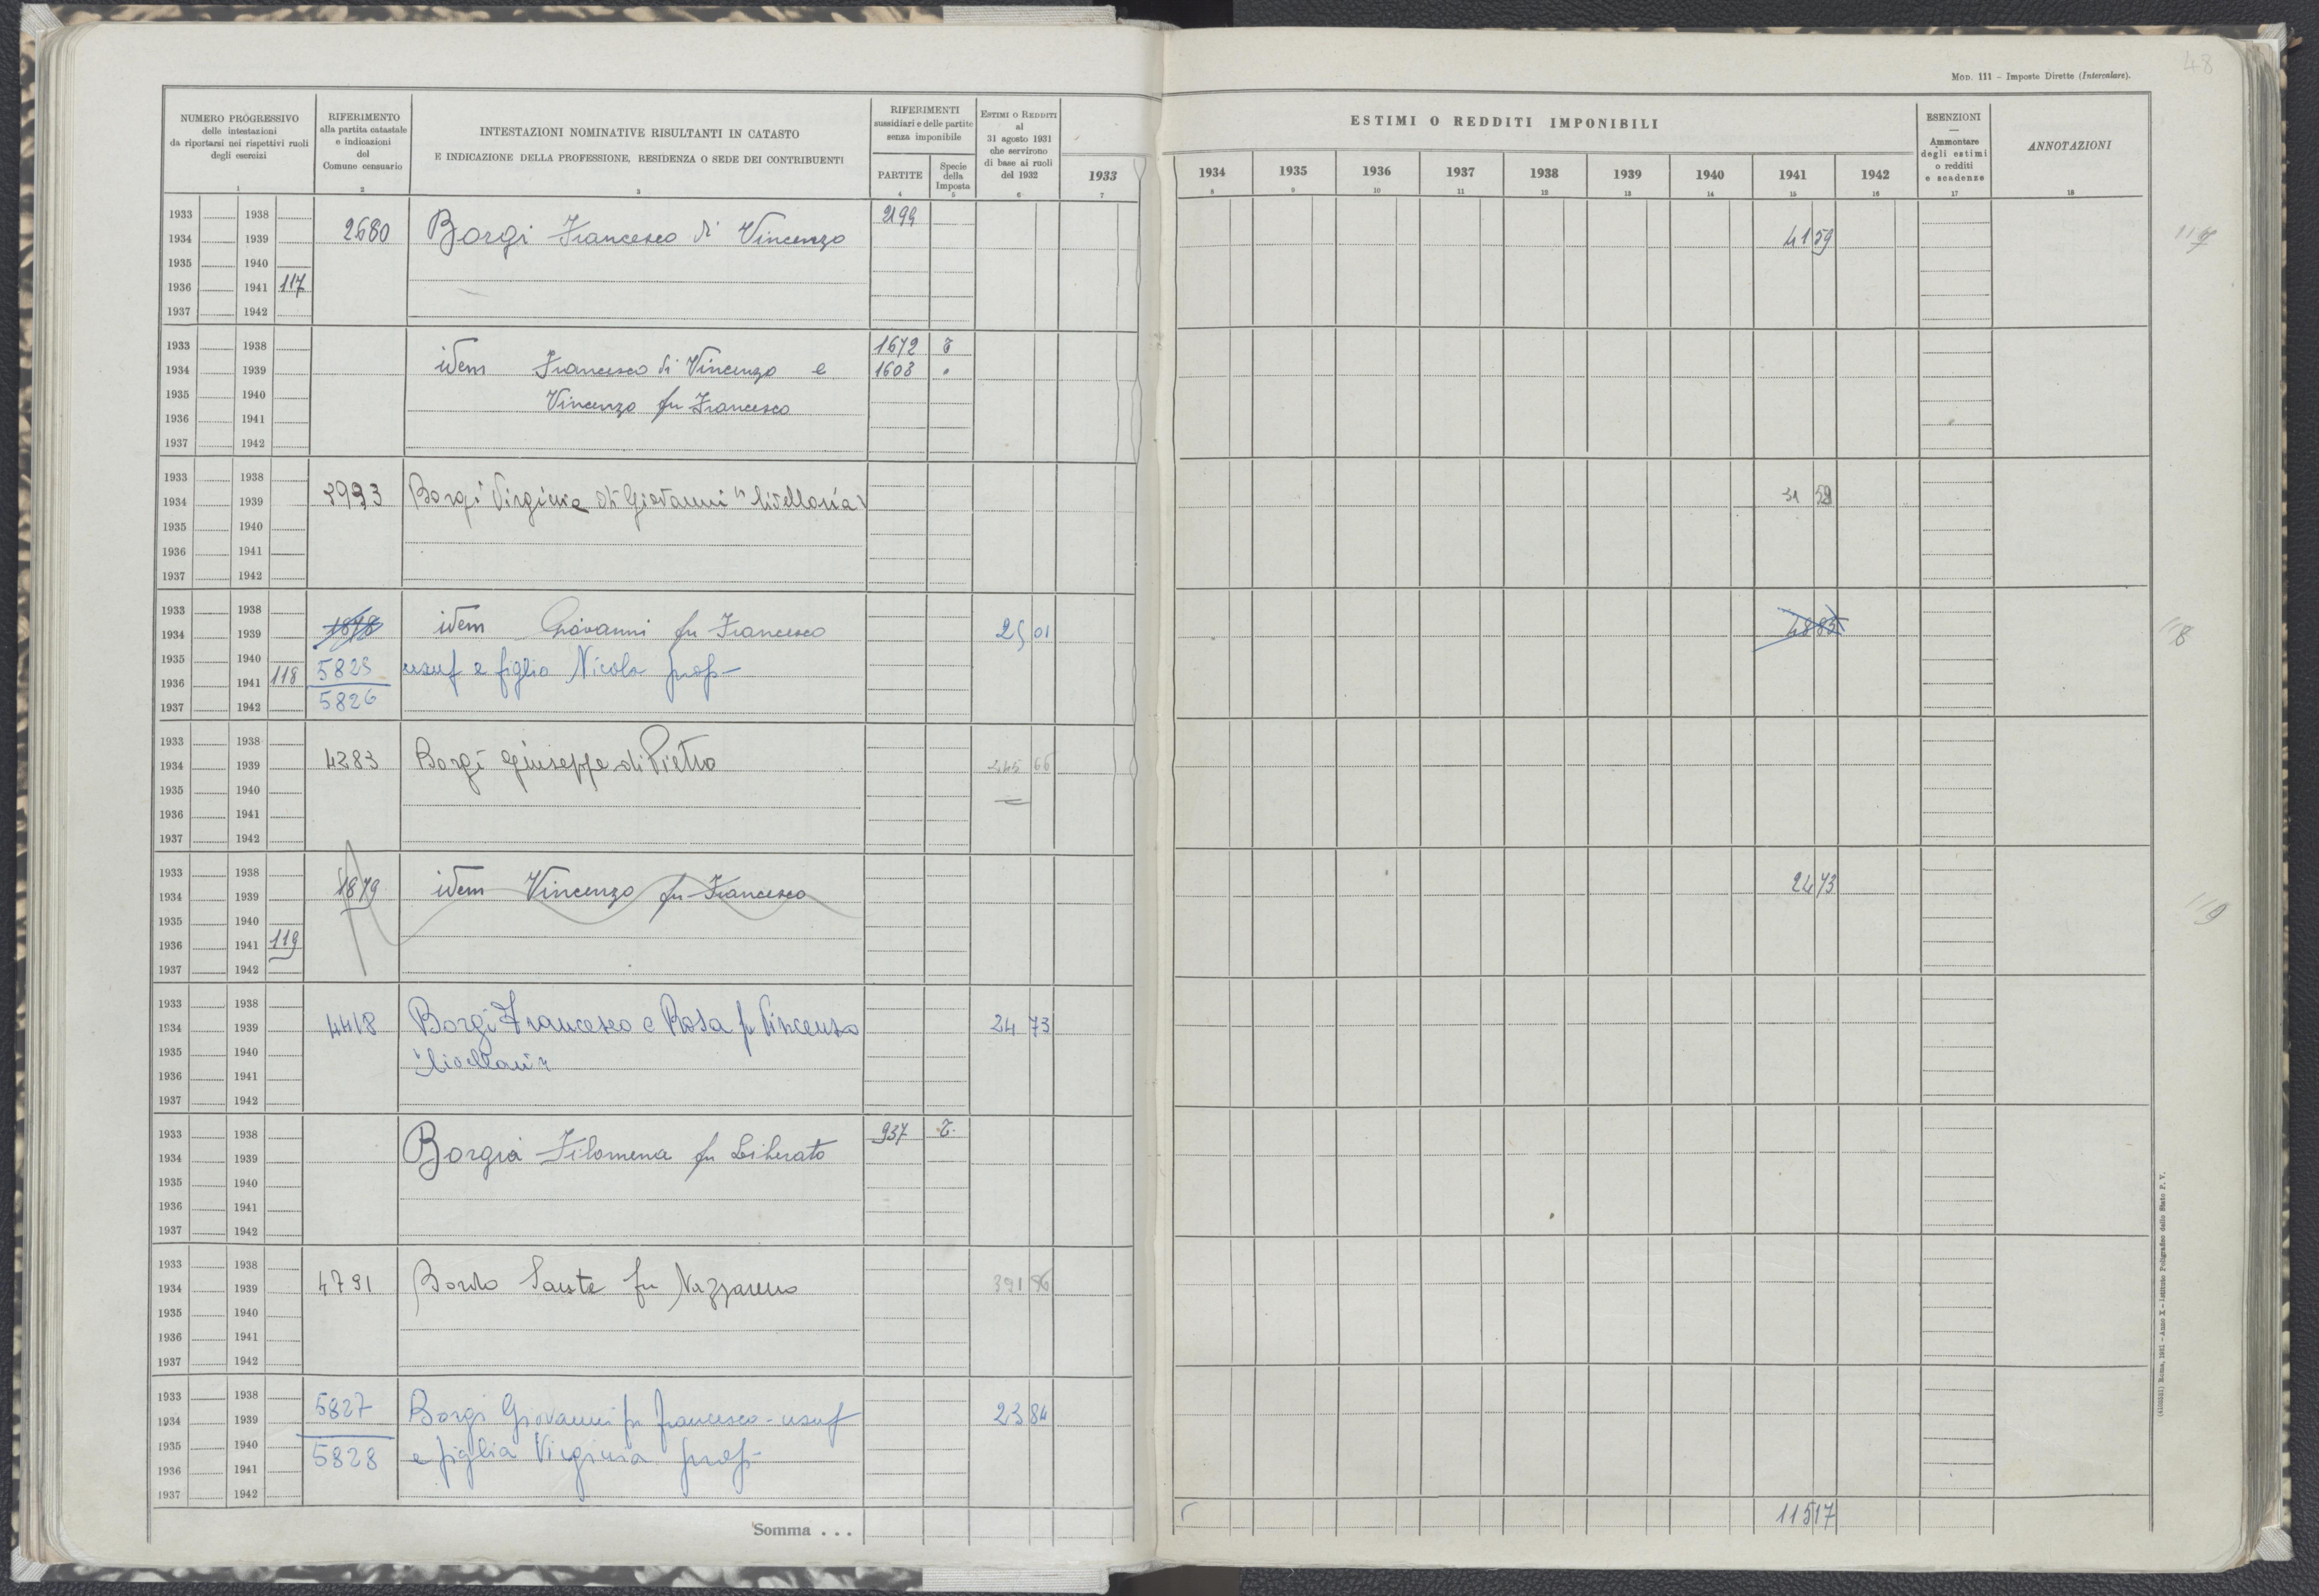 48
MOD. 111 – Imposte Dirette (Intercalare).
NUMERO PROGRESSIVO
delle intestazioni
da riportarsi nei rispettivi ruoli
degli esercizi
1
RIFERIMENTO
alla partita catastale
e indicazioni
del
Comune censuario
2
INTESTAZIONI NOMINATIVE RISULTANTI IN CATASTO
E INDICAZIONE DELLA PROFESSIONE, RESIDENZA O SEDE DEI CONTRIBUENTI
3
RIFERIMENTI
sussidiari e delle partite
senza imponibile
PARTITE
4
Specie
della
Imposta
5
ESTIMI O REDDITI
al
31 agosto 1931
che servirono
di base ai ruoli
del 1932
6
1933
7
ESTIMI O REDDITI IMPONIBILI
1934 1935 1936 1937 1938 1939 1940 1941 1942
8 9 10 11 12 13 14 15 16
ESENZIONI
—
Ammontare
degli estimi
o redditi
e scadenze
17
ANNOTAZIONI
18
1933 1938 2199
1934 1939 2680 Borgi Francesco di Vincenzo 41 59 117
1935 1940
1936 1941 117
1937 1942
1933 1938 1672 T
1934 1939 idem Francesco di Vincenzo e 1603 "
1935 1940 Vincenzo fu Francesco
1936 1941
1937 1942
1933 1938
1934 1939 3993 Borgi Virginia di Giovanni "livellaria" 31 59
1935 1940
1936 1941
1937 1942
1933 1938
1934 1939 1878 idem Giovanni fu Francesco 25 01 48 85 118
1935 1940 5825 usuf e figlio Nicola prop-
1936 1941 118
1937 1942 5826
1933 1938
1934 1939 4283 Borgi Giuseppe di Pietro 245 66
1935 1940
1936 1941
1937 1942
1933 1938
1934 1939 1879 idem Vincenzo fu Francesco 24 73 119
1935 1940
1936 1941 119
1937 1942
1933 1938
1934 1939 4418 Borgi Francesco e Rosa fu Vincenzo 24 73
1935 1940 "livellari"
1936 1941
1937 1942
1933 1938 937 T.
1934 1939 Borgia Filomena fu Liberato
1935 1940
1936 1941
1937 1942
1933 1938
1934 1939 4791 Sante fu Nazzareno 391 86
1935 1940
1936 1941
1937 1942
1933 1938 5827
1934 1939 Borgi Giovanni fu Francesco - usuf 23 84
1935 1940 5828 e figlia Virginia prop-
1936 1941
1937 1942
Somma . . . 115 17
Roma, 1931 – Anno X – Istituto Poligrafico dello Stato P. V.